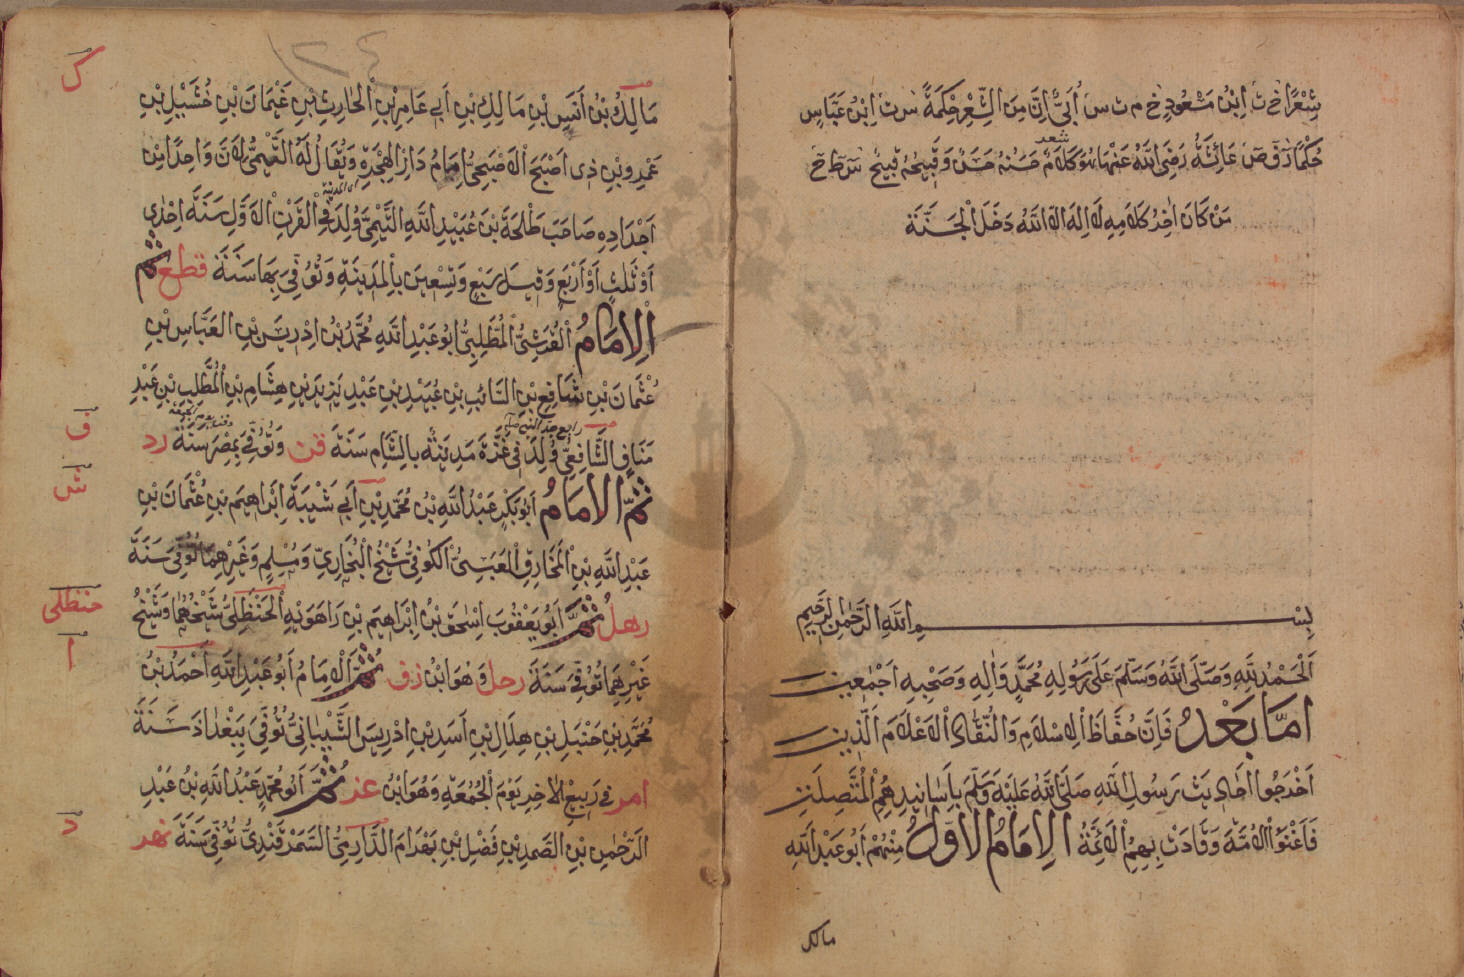 شِعْرًا خ ت اِبْنُ مَسْعُودٍ خ م ت س أُبَيٌّ اِنَّ مِنَ الشِّعْرِ حِكْمَةً س ت اِبْنُ عَبَّاسٍ
شعر
حُكْمًا د ق ص عَائِشَةُ رَضِىَ اللّٰهُ عَنْهَا هُوَ كَلَامٌ حَسَنُهُ حَسَنٌ وَقَبِيحُهُ قَبِيحٌ
مَنْ كَانَ اٰخِرُ كَلَامِهِ لَا اِلٰهَ اِلَّا اللّٰهُ دَخَلَ الْجَنَّةَ
بِسْمِ اللّٰهِ الرَّحْمٰنِ الرَّحِيمِ
اَلْحَمْدُ لِلّٰهِ وَصَلَّى اللّٰهُ وَسَلَّمَ عَلَى رَسُولِهِ مُحَمَّدٍ وَاٰلِهِ وَصَحْبِهِ اَجْمَعِينَ
اَمَّا بَعْدُ فَاِنَّ حُفَّاظَ الْاِسْلَامِ وَالنُّقَّادَ الْاَعْلَامَ الَّذِينَ
اَخْرَجُوا اَحَادِيثَ رَسُولِ اللّٰهِ صَلَّى اللّٰهُ عَلَيْهِ وَسَلَّمَ بِاَسَانِيدِهِمُ الْمُتَّصِلَةِ
فَاَغْنَوُا الْاُمَّةَ وَقَادَتْ بِهِمُ الْاَئِمَّةُ الْاِمَامُ الْاَوَّلُ مِنْهُمْ اَبُو عَبْدِ اللّٰهِ
مالك
٢٤
ك
مَالِكُ بْنُ اَنَسِ بْنِ مَالِكِ بْنِ اَبِي عَامِرِ بْنِ الْحَارِثِ بْنِ غَيْمَانَ بْنِ خُثَيْلِ بْنِ
عَمْرِو بْنِ ذِى اَصْبَحَ الْاَصْبَحِىُّ اِمَامُ دَارِ الْهِجْرَةِ وَيُقَالُ لَهُ التَّيْمِىُّ لِاَنَّ وَاحِدًا مِنْ
اَجْدَادِهِ صَاحَبَ طَلْحَةَ بْنَ عُبَيْدِ اللّٰهِ التَّيْمِىَّ وُلِدَ فِى الْقَرْنِ الْاَوَّلِ سَنَةَ اِحْدٰى
اَوْ ثَلٰثٍ اَوْ اَرْبَعٍ وَقِيلَ سَبْعٍ وَتِسْعِينَ بِالْمَدِينَةِ وَتُوُفِّىَ بِهَا سَنَةَ قطع ثُمَّ
الْاِمَامُ الْقُرَشِىُّ الْمُطَّلِبِىُّ اَبُو عَبْدِ اللّٰهِ مُحَمَّدُ بْنُ اِدْرِيسَ بْنِ الْعَبَّاسِ بْنِ
عُثْمَانَ بْنِ شَافِعِ بْنِ السَّائِبِ بْنِ عُبَيْدِ بْنِ عَبْدِ يَزِيدَ بْنِ هِشَامِ بْنِ الْمُطَّلِبِ بْنِ عَبْدِ
ف
مَنَافٍ الشَّافِعِىُّ وُلِدَ فِى غَزَّةَ مَدِينَةٍ بِالشَّامِ سَنَةَ قن وَتُوُفِّىَ بِمِصْرَ سَنَةَ رد
ش
ثُمَّ الْاِمَامُ اَبُو بَكْرٍ عَبْدُ اللّٰهِ بْنُ مُحَمَّدِ بْنِ اَبِي شَيْبَةَ اِبْرَاهِيمَ بْنِ عُثْمَانَ بْنِ
عَبْدِ اللّٰهِ بْنِ الْمُخَارِقِ الْعَبْسِىُّ الْكُوفِىُّ شَيْخُ الْبُخَارِىِّ وَمُسْلِمٍ وَغَيْرِهِمَا تُوُفِّىَ سَنَةَ
حنظلى
رهل ثُمَّ اَبُو يَعْقُوبَ اِسْحٰقُ بْنُ اِبْرَاهِيمَ بْنِ رَاهَوَيْهِ الْحَنْظَلِىُّ شَيْخُهُمَا وَشَيْخُ
ا
غَيْرِهِمَا تُوُفِّىَ سَنَةَ رحل وَهُوَ ابْنُ زف ثُمَّ الْاِمَامُ اَبُو عَبْدِ اللّٰهِ اَحْمَدُ بْنُ
مُحَمَّدِ بْنِ حَنْبَلِ بْنِ هِلَالِ بْنِ اَسَدِ بْنِ اِدْرِيسَ الشَّيْبَانِىُّ تُوُفِّىَ بِبَغْدَادَ سَنَةَ
امر فِى رَبِيعِ الْاٰخِرِ يَوْمَ الْجُمُعَةِ وَهُوَ ابْنُ عز ثُمَّ اَبُو مُحَمَّدٍ عَبْدُ اللّٰهِ بْنُ عَبْدِ
د
الرَّحْمٰنِ بْنِ الصَّمَدِ بْنِ فَضْلِ بْنِ بَهْرَامَ الدَّارِمِىُّ السَّمَرْقَنْدِىُّ تُوُفِّىَ سَنَةَ نهر